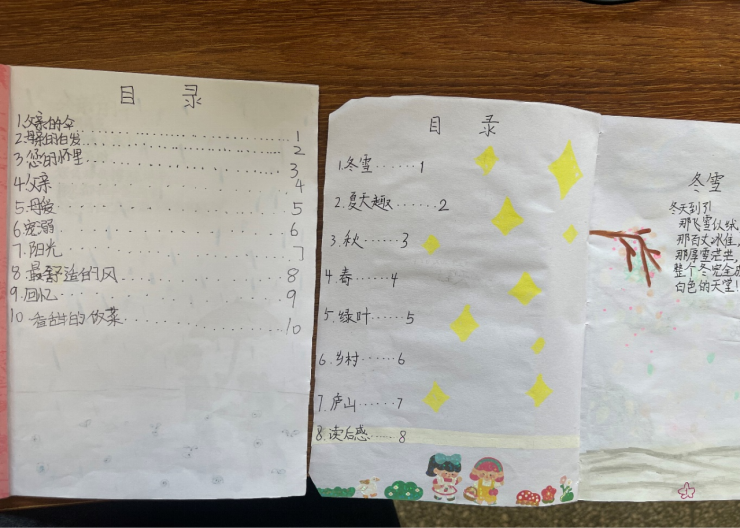 目 录
1.父亲的伞 1
2.母亲的白发 2
3.您的怀里 3
4.父亲 4
5.母爱 5
6.宠溺 6
7.阳光 7
8.最舒适的风 8
9.回忆 9
10 香甜的饭菜 10
目 录
1.冬雪……1
2.夏天趣……2
3.秋……3
4.春……4
5.绿叶……5
6.乡村……6
7.庐山……7
8.读后感……8
冬雪
冬天到了
那飞雪似绒
那百丈冰佳
那厚雪茫茫,
整个冬完全
白色的天堂!